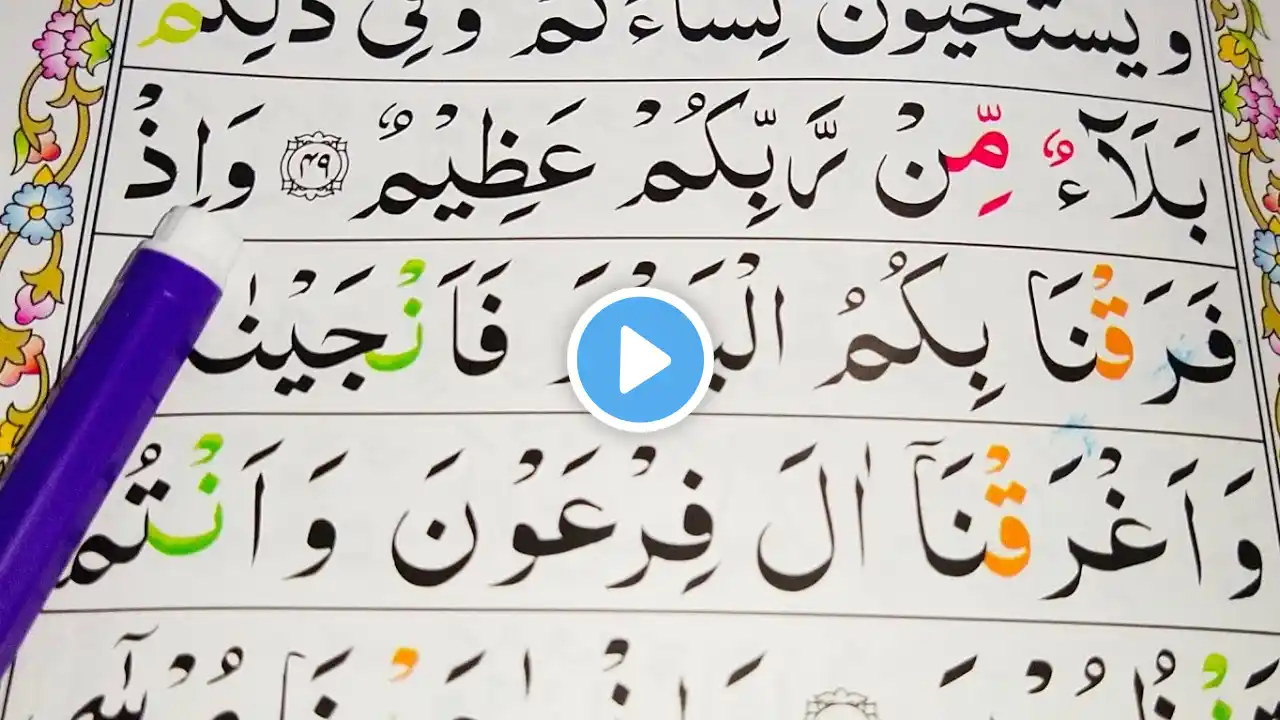 وَيَسْتَحْيُوْنَ نِسَآءَكُمْ وَفِيْ ذٰلِكُمْ
بَلَآءٌ مِّنْ رَّبِّكُمْ عَظِيْمٌ ۴۹ وَاِذْ
فَرَقْنَا بِكُمُ فَاَنْجَيْنٰ
وَاَغْرَقْنَآ اٰلَ فِرْعَوْنَ وَاَنْتُمْ